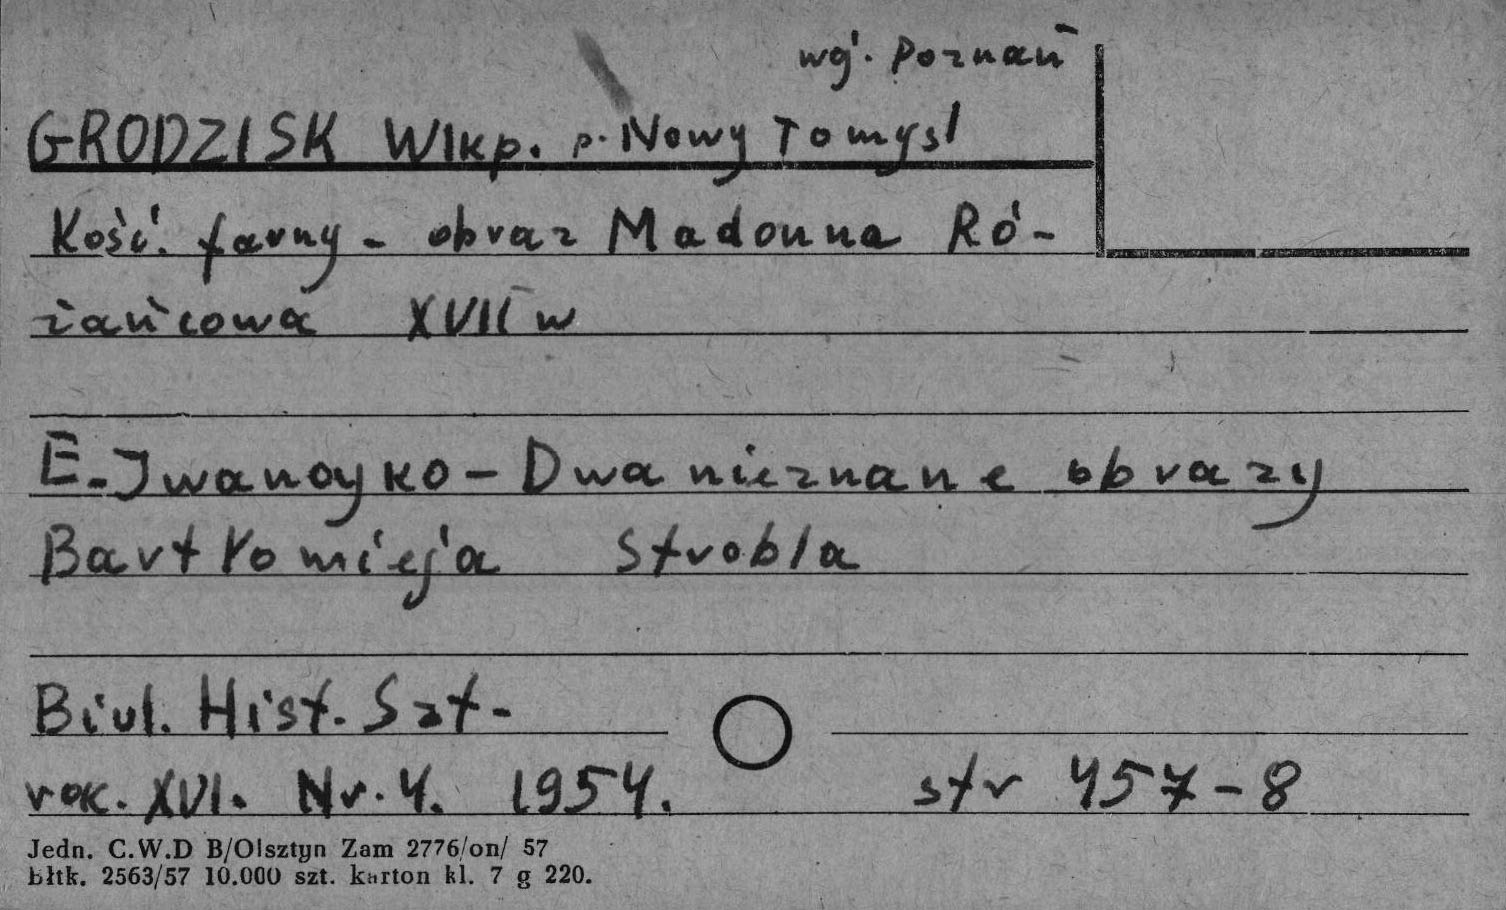 woj. Poznań
GRODZISK Wlkp. p. Nowy Tomyśl
Kość. farny - obraz Madonna Ró-
żańcowa XVII w
E. Iwanoyko - Dwa nieznane obrazy
Bartłomieja Strobla
Biul. Hist. Szt.
rok. XVI. Nr. 4. 1954. str 457-8
Jedn. C.W.D B/Olsztyn Zam 2776/on/ 57
błtk. 2563/57 10.000 szt. karton kl. 7 g 220.